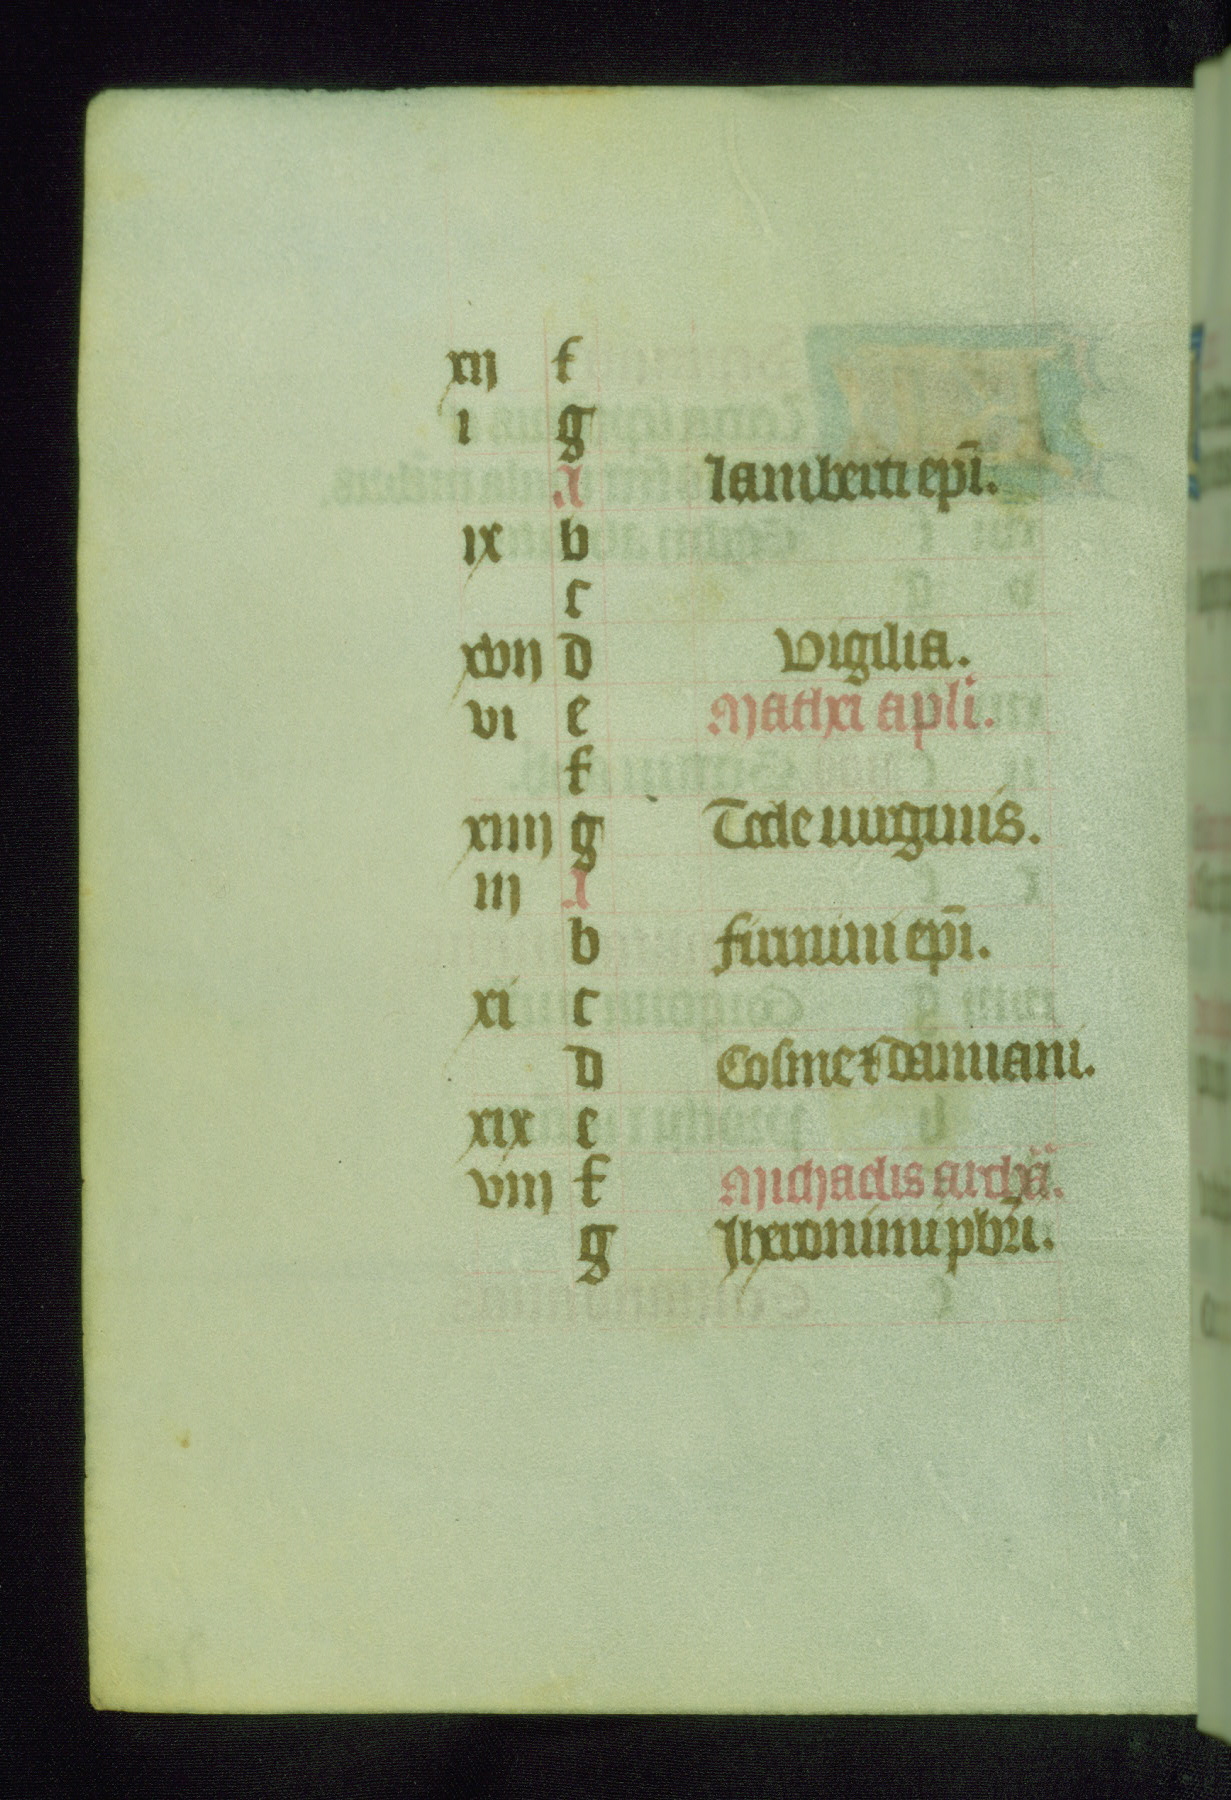 xij f
i g
A lamberti epī.
ix b
c
xvij d vigilia.
vi e Mathei apli.
f
xiiij g Tecle uirginis.
iij A
b firmini epī.
xi c
d Cosme et damiani.
xix e
viij f Michaelis archā.
g Jheronimi pbrī.